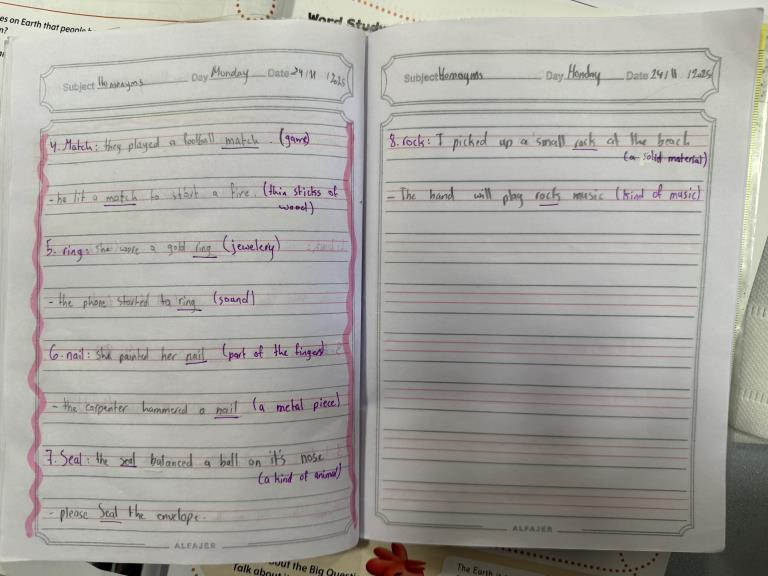 es on Earth that people
Word Stud
Subject Homonyms Day Monday Date 24/11/2025
4. Match: they played a football match. (game)
- he lit a match to start a fire. (thin sticks of
wood)
5. ring: she wore a gold ring (jewelery)
- the phone started to ring (sound)
6. nail: she painted her nail (part of the finger)
- the carpenter hammered a nail (a metal piece)
7. Seal: the seal balanced a ball on it's nose
(a kind of animal)
- please Seal the envelope.
ALFAJER
Subject Homonyms Day Monday Date 24/11/2025
8. rock: I picked up a small rock at the beach
(a solid material)
- The band will play rock music (kind of music)
ALFAJER
out the Big Quest
Talk about
The Earth